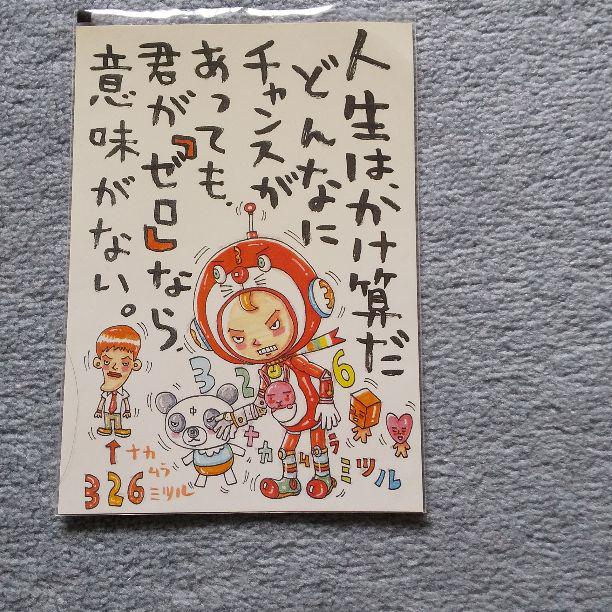 人生は、かけ算だ
どんなに
チャンスが
あっても、
君が『ゼロ』なら、
意味がない。
326
ナカムラミツル
↑
ナカ
ムラ
326 ミツル